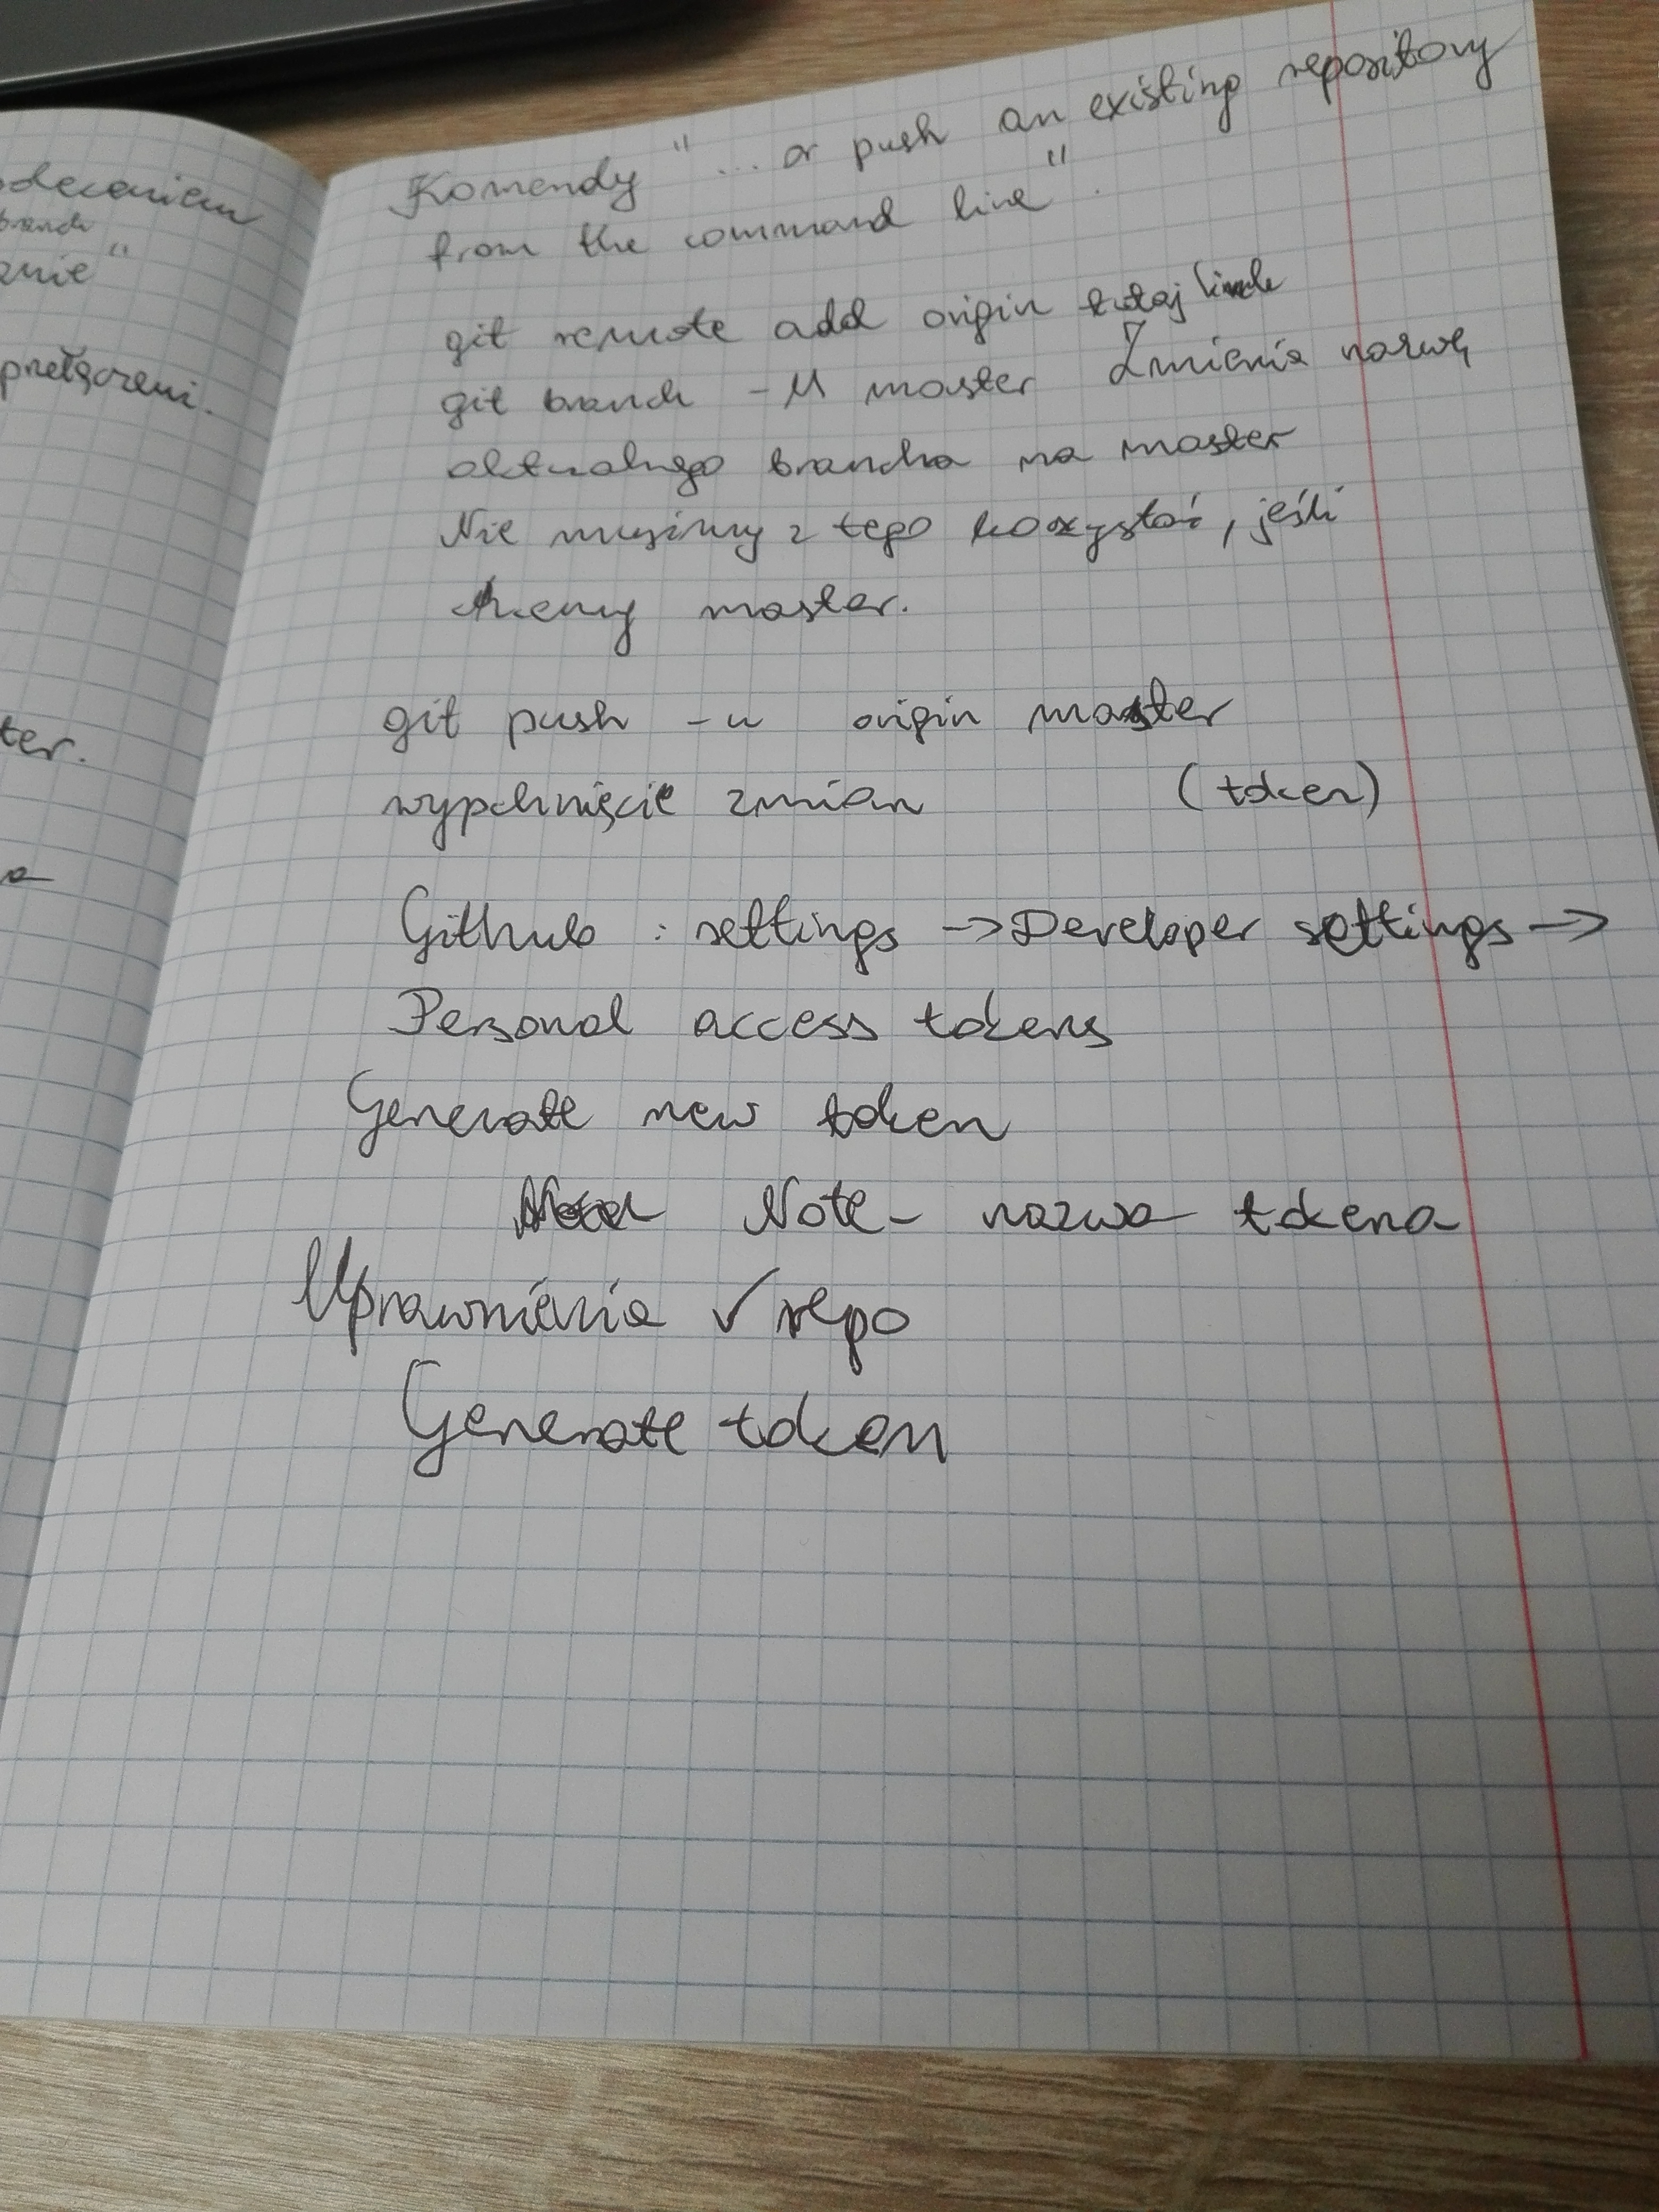 oleceniem
branch
znie"
przełączeni.
ter.
a
Komendy "... or push an existing repository
from the command line".
git remote add origin tutaj link
git branch -M master Zmienia nazwę
aktualnego brancha na master
Nie musimy z tego kozystać, jeśli
chcemy master.
git push -u origin master
wypchnięcie zmian (token)
Github : settings -> Developer settings ->
Personal access tokens
Generate new token
Note - nazwa tokena
Uprawnienia ✓ repo
Generate token